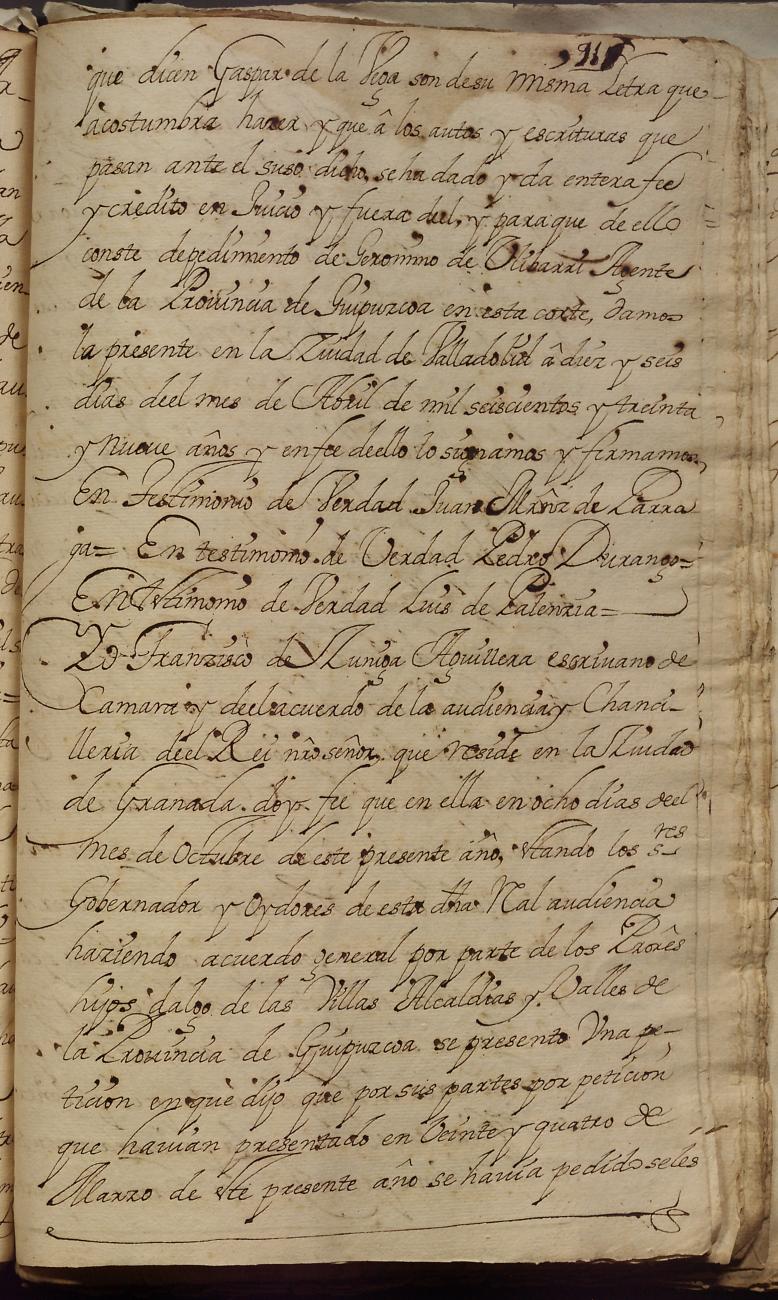 911
que dicen Gaspar de la Vega son de su misma Letra que
acostumbra hazer y que â los autos y escrituras que
pasan ante el suso dicho, se ha dado y da entera fee
y credito en Juicio y fuera del, y para que de ello
conste de pedimiento de Geronimo de Olibarri Agente
de la Prouincia de Guipuzcoa en esta corte, damos
la presente en la Ziudad de Valladolid â diez y seis
dias deel mes de Abril de mil seiscientos y treinta
y nueue años y en fee de ello lo signamos y firmamos,
En Testimonio de Verdad Juan Mrñz de Parra
ga= En testimonio de Verdad Pedro Durango=
En testimonio de Verdad Luis de Palenzia=
Yo Franzisco de Zuniga Aguillera escriuano de
Camara y deel acuerdo de la audiencia y Chanci-
lleria deel Rei nrõ señor, que reside en la Ziudad
de Granada. doy fee que en ella en ocho dias deel
mes de Octubre de este presente año, estando los sres
Gobernador y Oydores de esta dha Real audiencia
haziendo acuerdo general por parte de los Prorês
hijos dalgo de las Villas Alcaldias y Valles de
la Prouincia de Guipuzcoa se presento Vna pe-
ticion en que dijo que por sus partes por peticion
que hauian presentado en Veinte y quatro de
Marzo de este presente año se hauia pedido se les